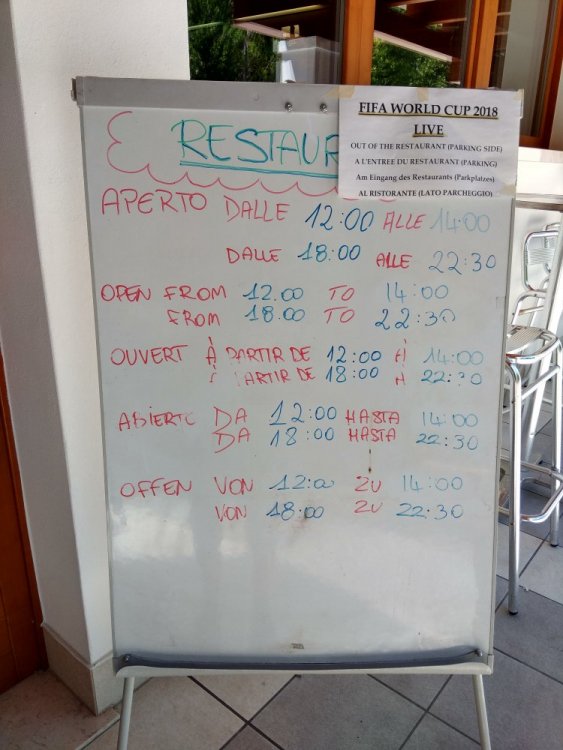 RESTAUR
FIFA WORLD CUP 2018
LIVE
OUT OF THE RESTAURANT (PARKING SIDE)
A L'ENTREE DU RESTAURANT (PARKING)
Am Eingang des Restaurants (Parkplatzes)
AL RISTORANTE (LATO PARCHEGGIO)
APERTO DALLE 12:00 ALLE 14:00
DALLE 18:00 ALLE 22:30
OPEN FROM 12.00 TO 14:00
FROM 18.00 TO 22:30
OUVERT À PARTIR DE 12:00 À 14:00
À PARTIR DE 18:00 À 22:30
ABIERTO DA 12:00 HASTA 14:00
DA 18:00 HASTA 22:30
OFFEN VON 12:00 ZU 14:00
VON 18:00 ZU 22:30